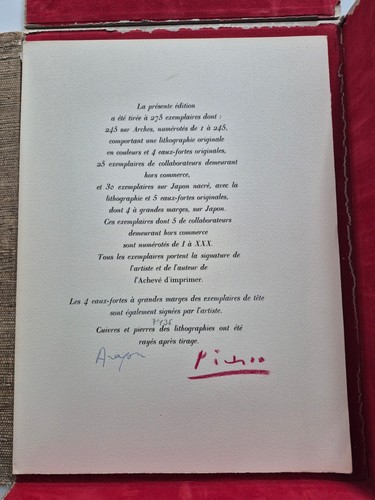 La présente édition
a été tirée à 275 exemplaires dont :
245 sur Arches, numérotés de 1 à 245,
comportant une lithographie originale
en couleurs et 4 eaux-fortes originales,
25 exemplaires de collaborateurs demeurant
hors commerce,
et 30 exemplaires sur Japon nacré, avec la
lithographie et 5 eaux-fortes originales,
dont 4 à grandes marges, sur Japon.
Ces exemplaires dont 5 de collaborateurs
demeurant hors commerce
sont numérotés de I à XXX.
Tous les exemplaires portent la signature de
l'artiste et de l'auteur de
l'Achevé d'imprimer.
Les 4 eaux-fortes à grandes marges des exemplaires de tête
sont également signées par l'artiste.
Cuivres et pierres des lithographies ont été
rayés après tirage.
Aragon Picasso